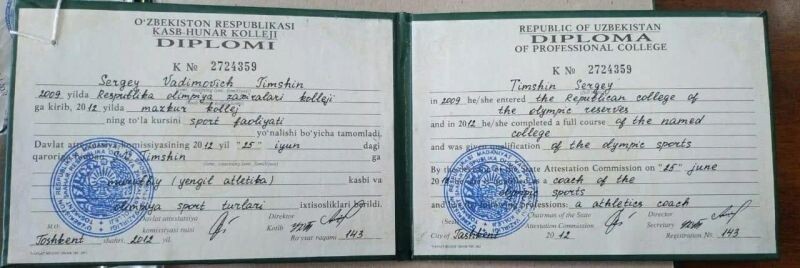 O'ZBEKISTON RESPUBLIKASI
KASB-HUNAR KOLLEJI
DIPLOMI
K № 2724359
Sergey Vadimovich Timshin
2009 yilda Respublika olimpiya zaxiralari kolleji
ga kirib, 2012 yilda mazkur kollej
ning to'la kursini sport faoliyati
yo'nalishi bo'yicha tamomladi.
Davlat attestatsiya komissiyasining 2012 yil "25" iyun dagi
qarori Timshin
(yengil atletika) kasbi va
olimpiya sport turlari ixtisosliklari
M.O. Davlat attestatsiya komissiyasi raisi
Direktor
Kotib
Toshkent shahri, 2012 yil. Ro'yxat raqami 143
REPUBLIC OF UZBEKISTAN
DIPLOMA
OF PROFESSIONAL COLLEGE
K № 2724359
Timshin Sergey
in 2009 he/she entered the Republican college of
the olympic reserves
and in 2012 he/she completed a full course of the named
college
and was given qualification of the olympic sports
By the State Attestation Commission on "25" june
coach of the
olympic sports
a athletics coach
Chairman of the State Attestation Commission
Director
Secretary
City of Tashkent 2012 Registration No. 143